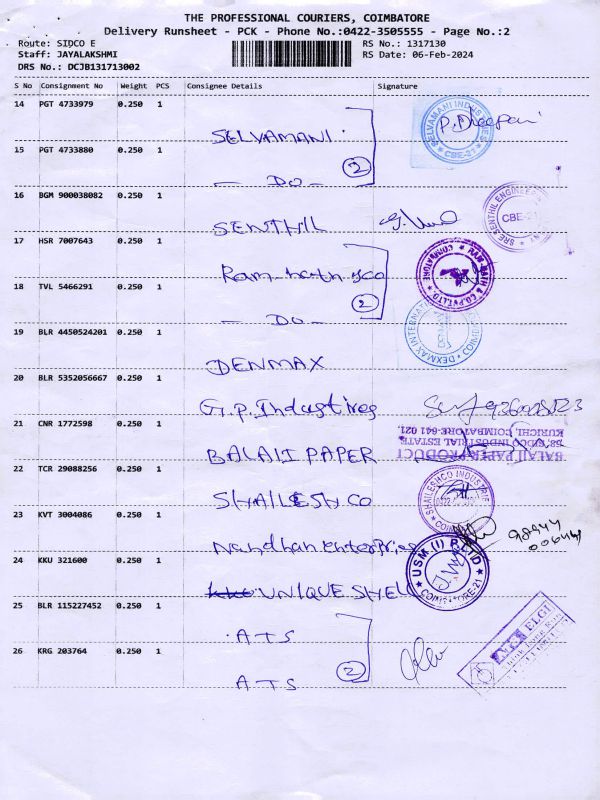 THE PROFESSIONAL COURIERS, COIMBATORE
Delivery Runsheet - PCK - Phone No.:0422-3505555 - Page No.:2
Route: SIDCO E
RS No.: 1317130
Staff: JAYALAKSHMI
RS Date: 06-Feb-2024
DRS No.: DCJB131713002
S No Consignment No Weight PCS Consignee Details Signature
14 PGT 4733979 0.250 1
SELVAMANI
SELVAMANI INDUSTRIES
* CBE-21 *
15 PGT 4733880 0.250 1
- DO -
2
16 BGM 900038082 0.250 1
SENTHIL
SRE SENTHIL ENGINEE
CBE-21
17 HSR 7007643 0.250 1
Ram
RAM NATH & CO.PVT.LTD.
COIMBATORE
18 TVL 5466291 0.250 1
- DO -
2
19 BLR 4450524201 0.250 1
DENMAX
DEXMAX INTERNATIONAL
20 BLR 5352056667 0.250 1
G.P. Industires
21 CNR 1772598 0.250 1
BALAJI PAPER
BALAJI PAPER PRODUCT
58, SIDCO INDUSTRIAL ESTATE,
KURICHI, COIMBATORE-641 021.
22 TCR 29088256 0.250 1
SHAILESH CO
SHAILESHCO INDUSTRIE
23 KVT 3004086 0.250 1
Nandhan enterprises
98944
24 KKU 321600 0.250 1
UNIQUE SHELL
USM (I) P. LTD
COIMBATORE-21
25 BLR 115227452 0.250 1
ATS
26 KRG 203764 0.250 1
ATS
2
ATS ELGI